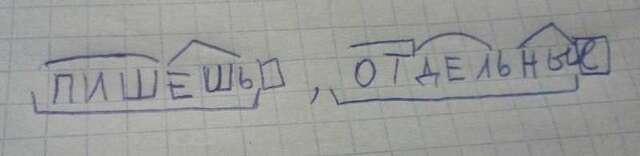 ПИШЕШЬ, ОТДЕЛЬНЫЕ